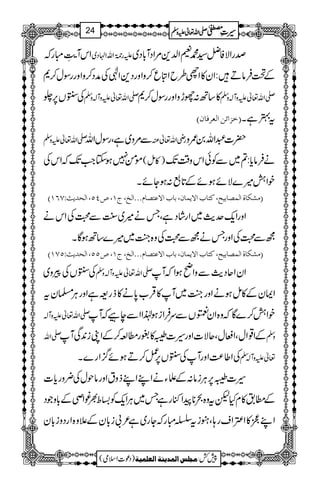 سیرتِ مصطفیٰ صلی اللہ تعالیٰ علیہ وسلم 24
صدر الافاضل سید محمد نعیم الدین مراد آبادی علیہ رحمۃ اللہ الہادی اس آیتِ مبارکہ
کے تحت فرماتے ہیں: ان کا اچھی طرح اتباع کرو اور دین الٰہی کی مدد کرو اور رسول کریم
صلی اللہ تعالیٰ علیہ وآلہ وسلم کا ساتھ نہ چھوڑو اور رسول کریم صلی اللہ تعالیٰ علیہ وآلہ وسلم کی سنتوں پر چلو
یہ بہتر ہے۔ (خزائن العرفان)
حضرت عبداللہ بن عمرو رضی اللہ تعالیٰ عنہ سے مروی ہے، رسول اللہ صلی اللہ تعالیٰ علیہ وسلم
نے فرمایا: تم میں سے کوئی اس وقت تک (کامل) مؤمن نہیں ہوسکتا جب تک کہ اس کی
خواہش میرے لائے ہوئے کے تابع نہ ہو جائے۔
(مشکاۃ المصابیح، کتاب الایمان، باب الاعتصام...الخ، ج۱، ص٥٤، الحدیث:١٦٧)
اور ایک حدیث میں ارشاد ہے، جس نے میری سنت سے محبت کی اس نے
مجھ سے محبت کی اور جس نے مجھ سے محبت کی وہ جنت میں میرے ساتھ ہوگا۔
(مشکاۃ المصابیح، کتاب الایمان، باب الاعتصام...الخ، ج۱، ص٥٥، الحدیث:١٧٥)
ان احادیث سے واضح ہوا کہ آپ صلی اللہ تعالیٰ علیہ وآلہ وسلم کی سنتوں کی پیروی
ایمان کے کامل ہونے اور جنت میں آپ کا قرب پانے کا ذریعہ ہے اور ہر مسلمان یہ
خواہش کرے گا کہ وہ ان نعمتوں سے سرفراز ہو لہٰذا اسے چاہیے کہ آپ صلی اللہ تعالیٰ علیہ وآلہ
وسلم کے اقوال، افعال، حالات اور سیرت طیبہ کا بغور مطالعہ کرکے اپنی زندگی آپ صلی اللہ
تعالیٰ علیہ وآلہ وسلم کی اطاعت اور آپ کی سنتوں پر عمل کرتے ہوئے گزارے۔
سیرت طیبہ پر ہر زمانہ کے علماء نے اپنے اپنے ذوق اور ماحول کی ضروریات
کے مطابق کام کیا لیکن یہ وہ بحر ناپیدا کنار ہے جس میں ہر ایک کو بساط بھر غواصی کے باوجود
اپنے عجز کا اعتراف رہا، ہنوز یہ سلسلہ مبارکہ جاری ہے عربی زبان کے علاوہ اردو زبان
پیش کش: مجلس المدینۃ العلمیۃ (دعوتِ اسلامی)